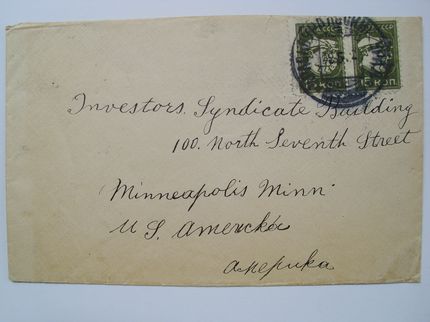 15 КОП 15 КОП
Investors. Syndicate Building
100. North Seventh Street
Minneapolis Minn
U S. Amerckа
америка